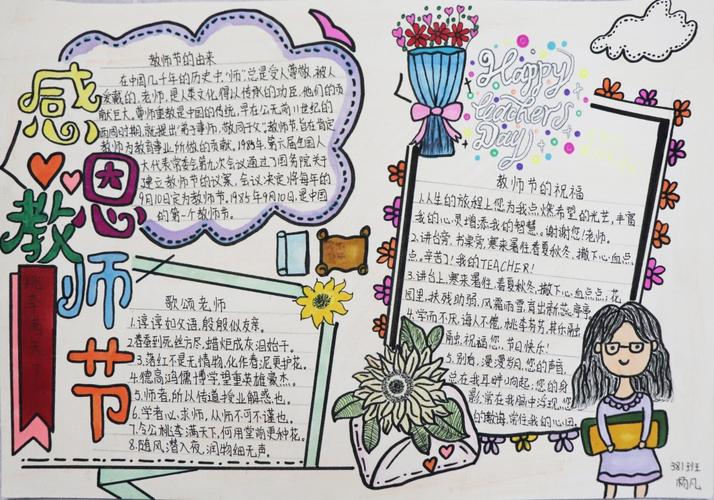 感恩
教师节
桃李满天下
教师节的由来
在中国几千年的历史中，"师"总是受人尊敬，被人
爱戴的，老师，是人类文化得以传承的功臣，他们的贡
献巨大，尊师重教是中国的传统，早在公元前11世纪的
西周时期，就提出"弟子事师，敬同于父"教师节旨在肯定
教师为教育事业所做的贡献，1985年，第六届全国人
大代表常委会第九次会议通过了国务院关于
建立教师节的议案，会议决定将每年的
9月10日定为教师节，1985年9月10日，是中国
的第一个教师节。
歌颂老师
1.谆谆如父语，殷殷似友亲。
2.春蚕到死丝方尽，蜡炬成灰泪始干。
3.落红不是无情物，化作春泥更护花。
4.德高鸿儒博学，望重英雄豪杰。
5.师者，所以传道授业解惑也。
6.学者必求师，从师不可不谨也。
7.令公桃李满天下，何用堂前更种花。
8.随风潜入夜，润物细无声。
Happy
teacher's
Day
教师节的祝福
1.人生的旅程上您为我点燃希望的光芒，丰富
我的心灵增添我的智慧。谢谢您！老师。
2.讲台旁，书桌旁，寒来暑往，春夏秋冬，撒下心血点
点，辛苦了！我的TEACHER！
3.讲台上，寒来暑往，春夏秋冬，撒下心血点点；花
园里，扶残助弱，风霜雨雪，育出新蕊亭亭
4.学而不厌，诲人不倦，桃李芬芳，其乐融
融，祝福您，节日快乐！
5.别后，漫漫岁月，您的声音，
总在我耳畔响起；您的身
影，常在我脑中浮现，您
的教诲，常在我的心田
381班
杨凡